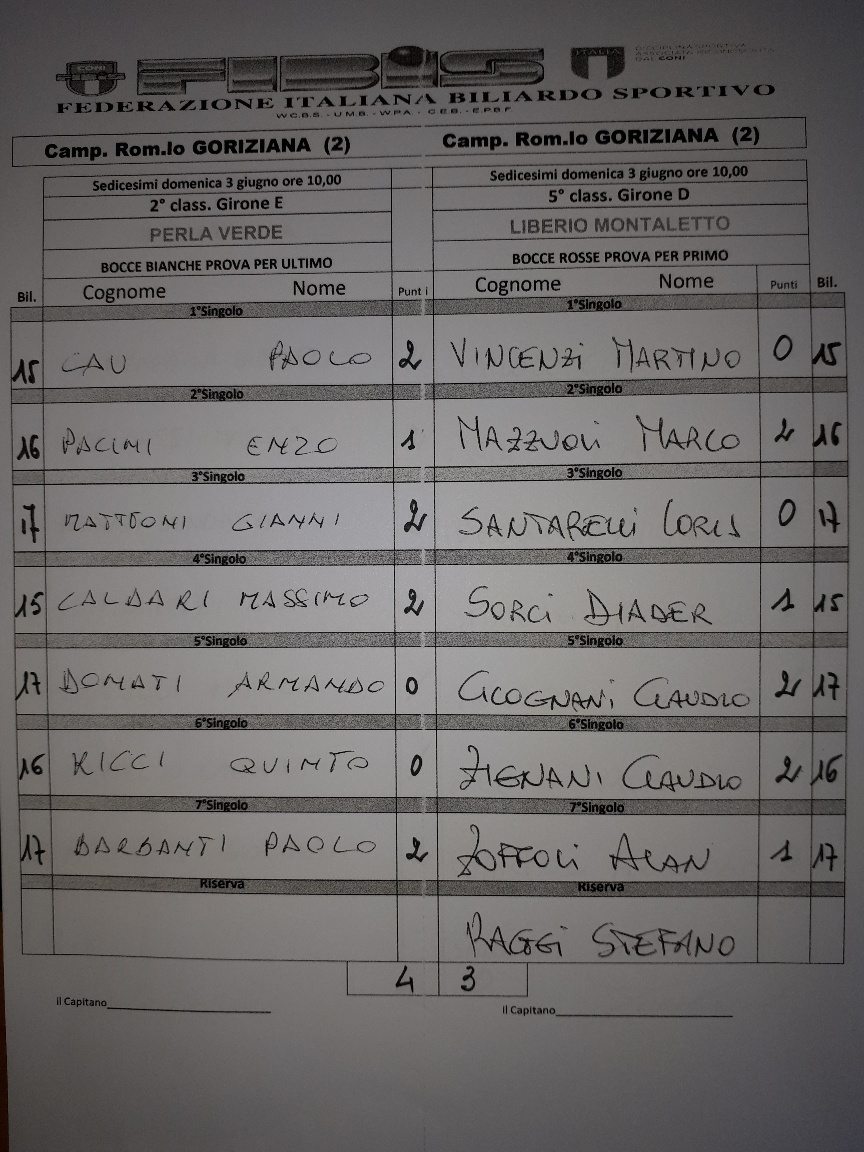 CONI FIBIS ITALIA
FEDERAZIONE ITALIANA BILIARDO SPORTIVO
W.C.B.S. - U.M.B. - W.P.A. - C.E.B. - E.P.B.F.
Camp. Rom.lo GORIZIANA (2) Camp. Rom.lo GORIZIANA (2)
Sedicesimi domenica 3 giugno ore 10,00 Sedicesimi domenica 3 giugno ore 10,00
2° class. Girone E 5° class. Girone D
PERLA VERDE LIBERIO MONTALETTO
BOCCE BIANCHE PROVA PER ULTIMO BOCCE ROSSE PROVA PER PRIMO
Bil. Cognome Nome Punti Cognome Nome Punti Bil.
1°Singolo 1°Singolo
15 CAU PAOLO 2 VINCENZI MARTINO 0 15
2°Singolo 2°Singolo
16 PACINI ENZO 1 MAZZUOLI MARCO 2 16
3°Singolo 3°Singolo
17 MATTEONI GIANNI 2 SANTARELLI LORIS 0 17
4°Singolo 4°Singolo
15 CALDARI MASSIMO 2 SORCI DIADER 1 15
5°Singolo 5°Singolo
17 DONATI ARMANDO 0 CICOGNANI CLAUDIO 2 17
6°Singolo 6°Singolo
16 RICCI QUINTO 0 ZIGNANI CLAUDIO 2 16
7°Singolo 7°Singolo
17 BARBANTI PAOLO 2 ZOFFOLI ALAN 1 17
Riserva Riserva
RAGGI STEFANO
4 3
Il Capitano Il Capitano